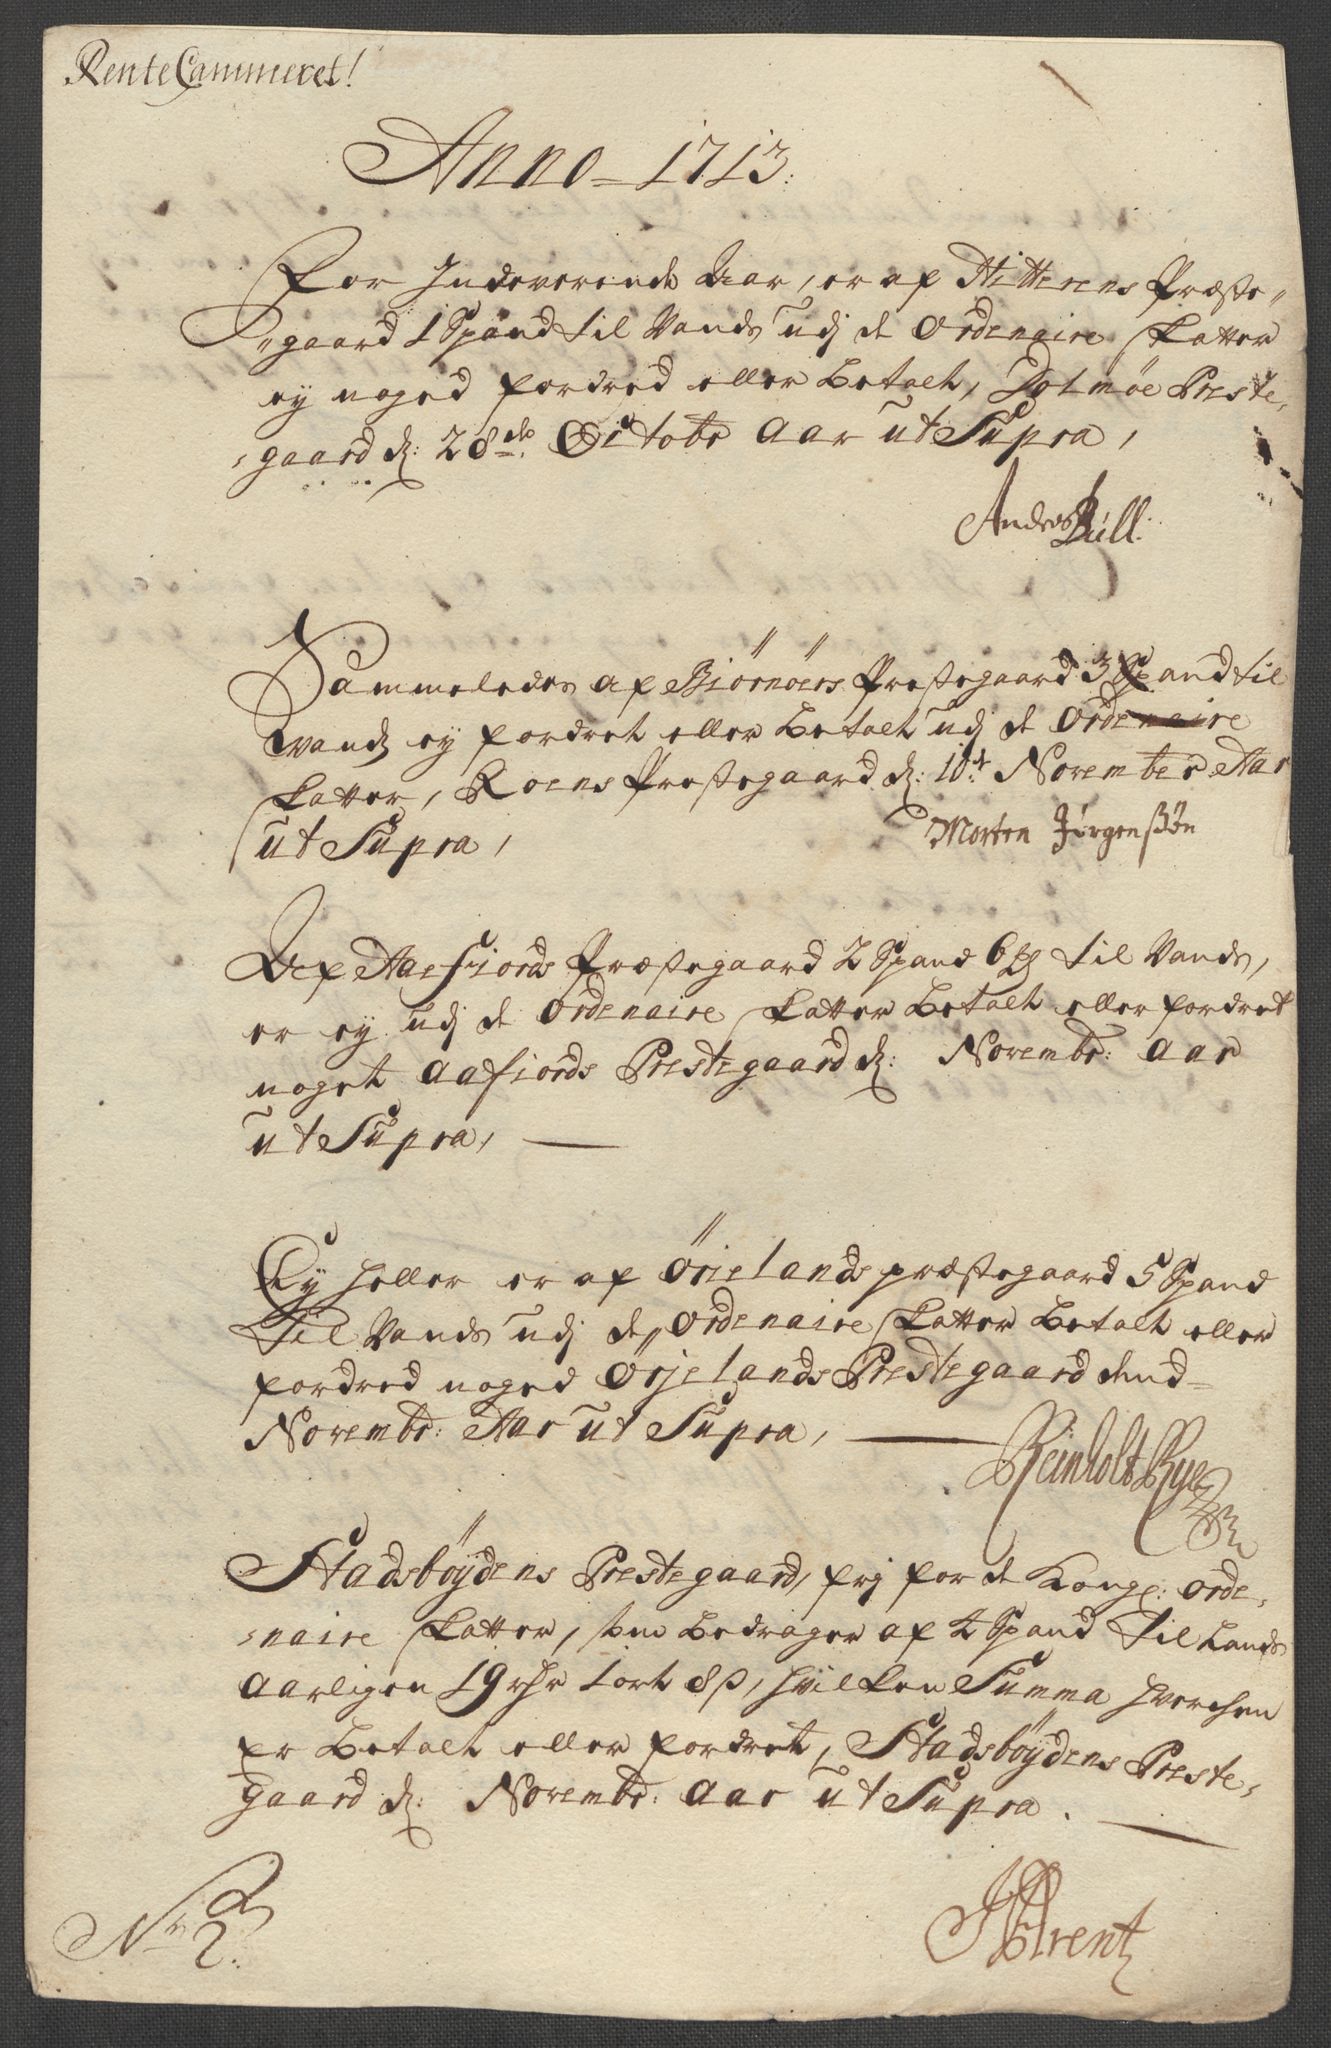 RenteCammeret!
Anno 1713:
For Indeverende Aar, er af Hitterens Præste„
„gaard 1 Spand til Vands udj de Ordenaire Skatter
ey noged fordred eller Betalt, Dolmøe Preste„
„gaard d: 28de Octobr Aar ut Supra,
Andros Bull.
Sammeledes af Biørnøers Prestegaard 3 Spand til
Vands ey fordret eller Betalt udj de Ordenaire
Skatter, Roens Prestegaard d: 10de November Aar
ut Supra,
Morten Jørgensøn
Af Aaefiords Præstegaard 2 Spand 6 til Vands,
er ey udj de Ordenaire Skatter Betalt eller fordret
noget Aafiords Prestegaard d: Novembr: Aar
ut Supra,
Ey heller er af Ørielands præstegaard 5 Spand
Til Vands udj de Ordenaire Skatter Betalt eller
fordred noged Ørjelands Prestegaard dend
Novembr: Aar ut Supra,
Reinholt Rye
Stadsbøydens Prestegaard, frj for de Kongl: Orde„
„naire Skatter, som bedrager af 4 Spand Til Lands
Aarligen 19 rdr 1 ort 8 s, hvilken Summa hverchen
er Betalt eller fordret, Stadsbøydens Preste„
Gaard d: Novembr: Aar ut Supra.
Brent
No 2.